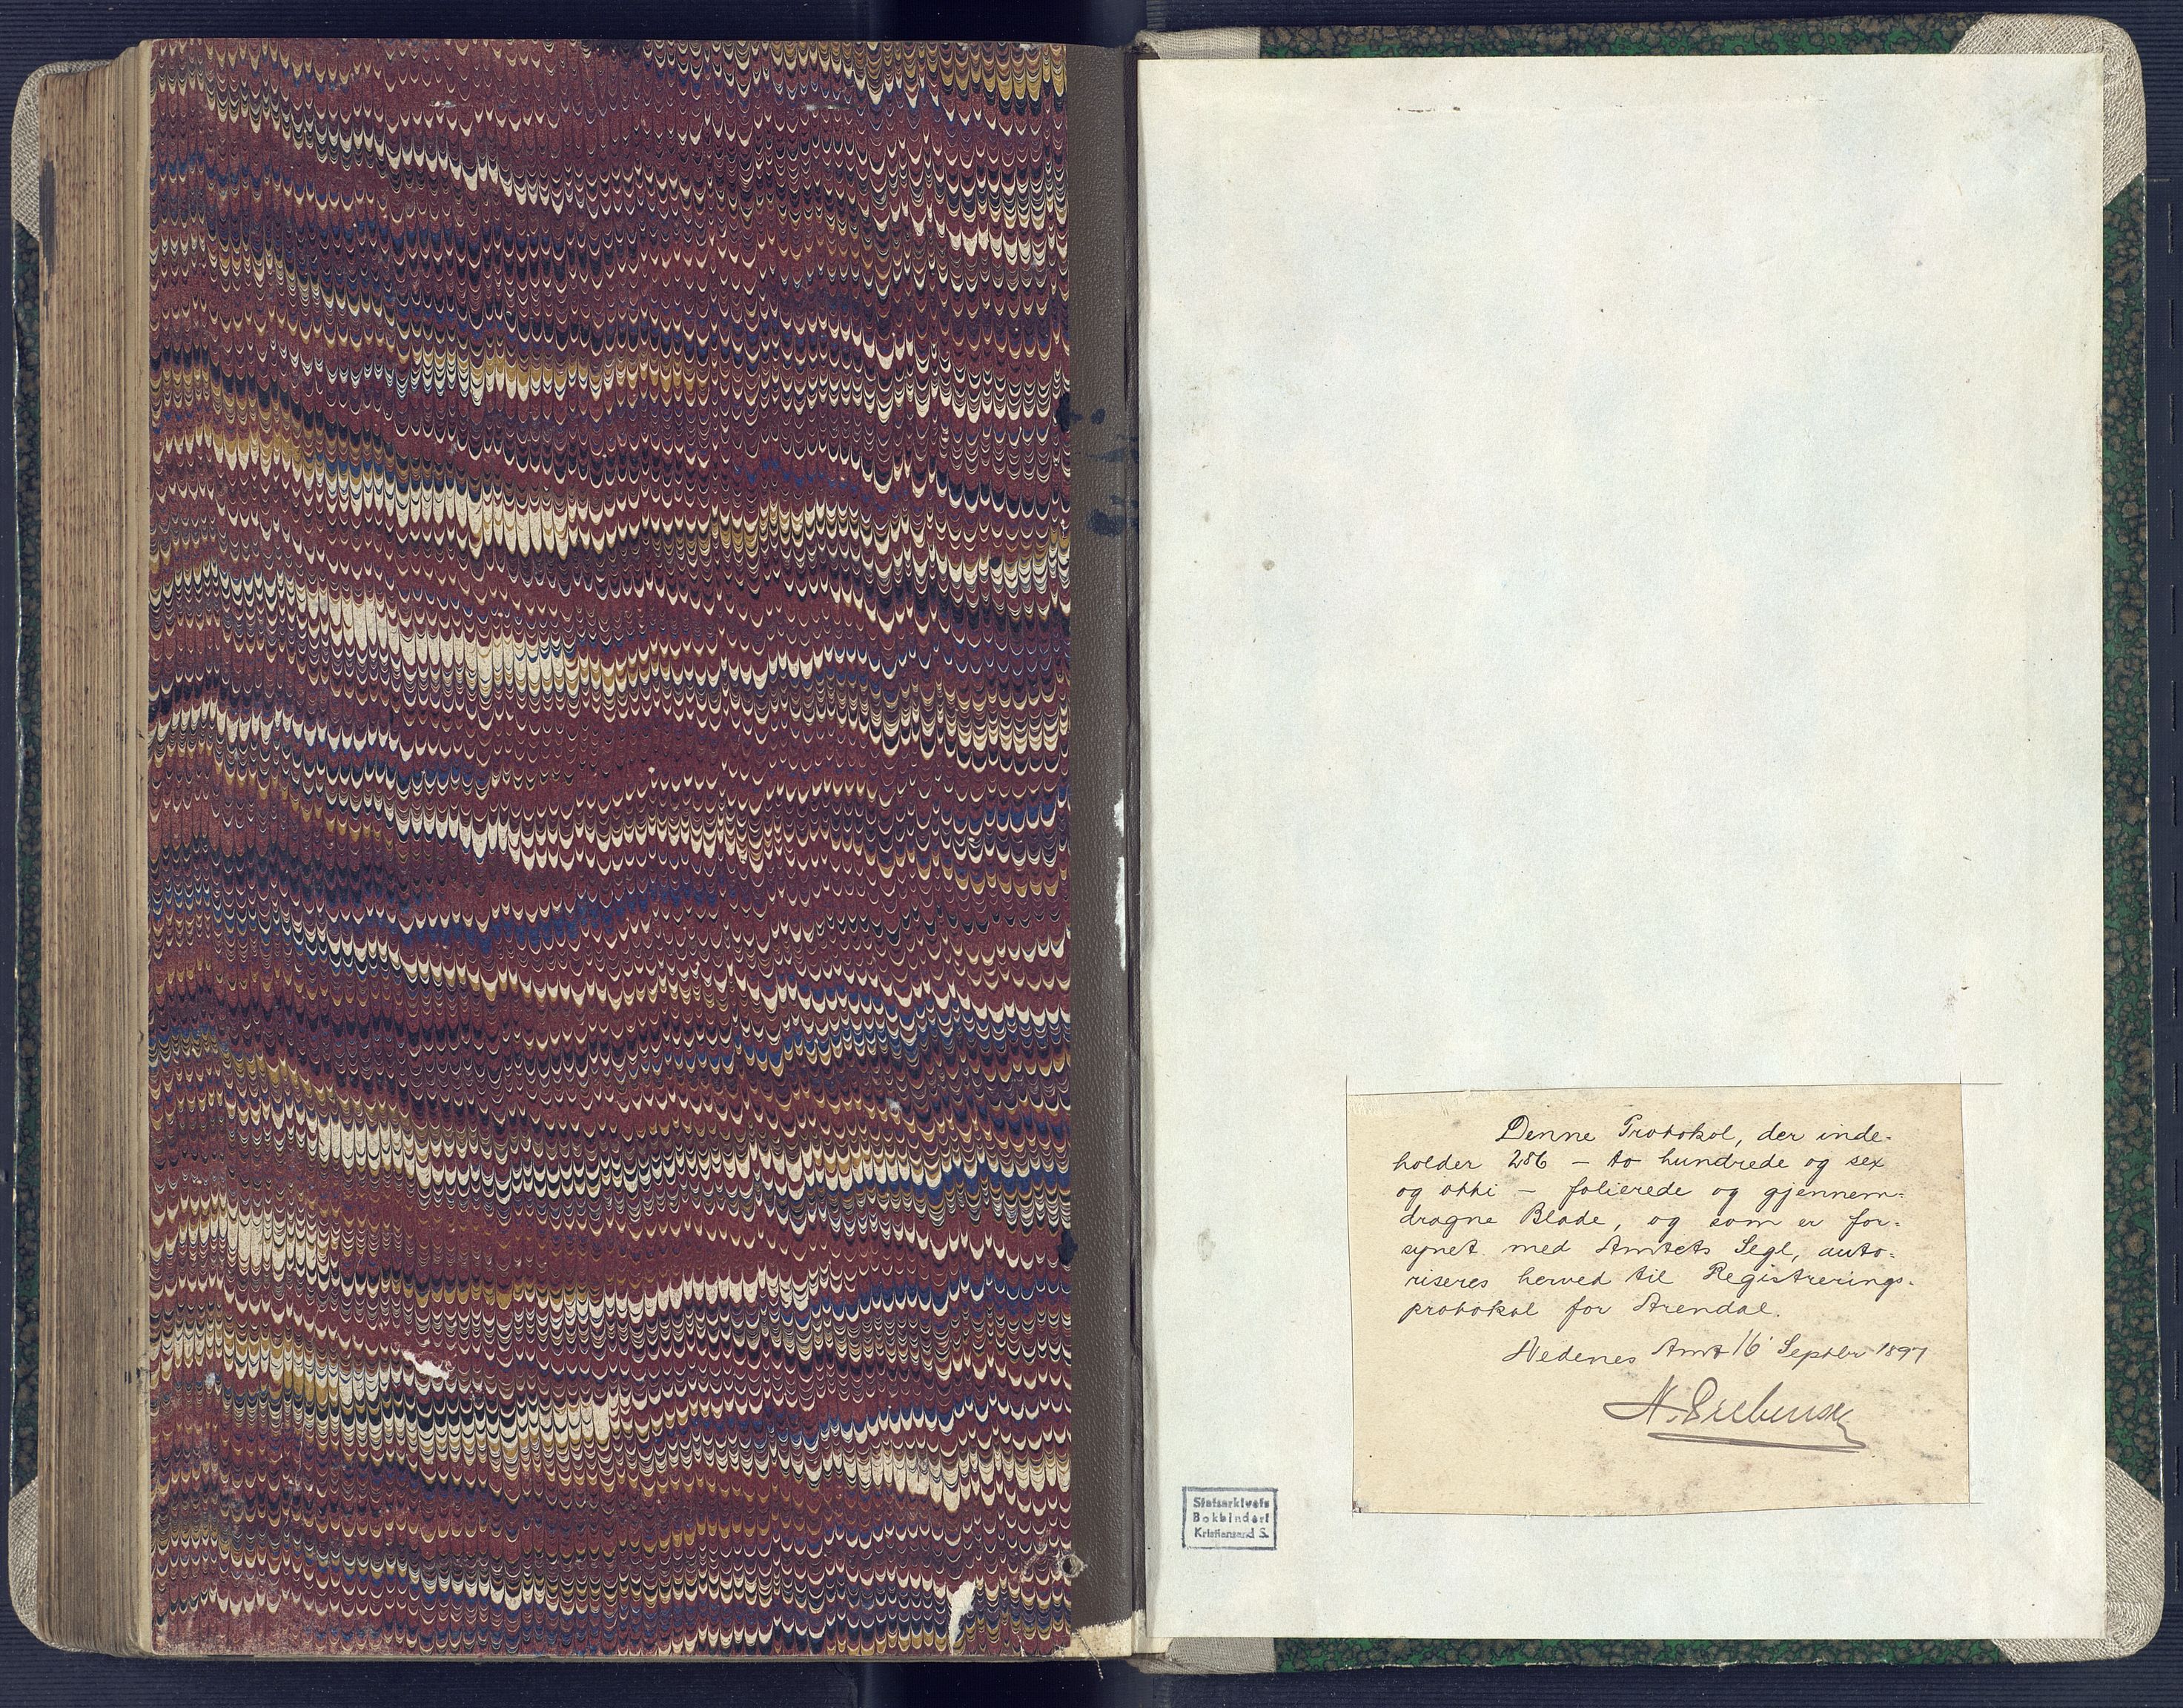 Denne Protokol, der inde-
holder 286 – to hundrede og sex
og otti – folierede og gjennem-
dragne Blade, og som er for-
synet med Amtets Segl, auto-
riseres herved til Registrerings-
protokol for Arendal.
Nedenes Amt 16 Septbr 1897
N.
Statsarkivets
Bokbinderi
Kristiansand S.